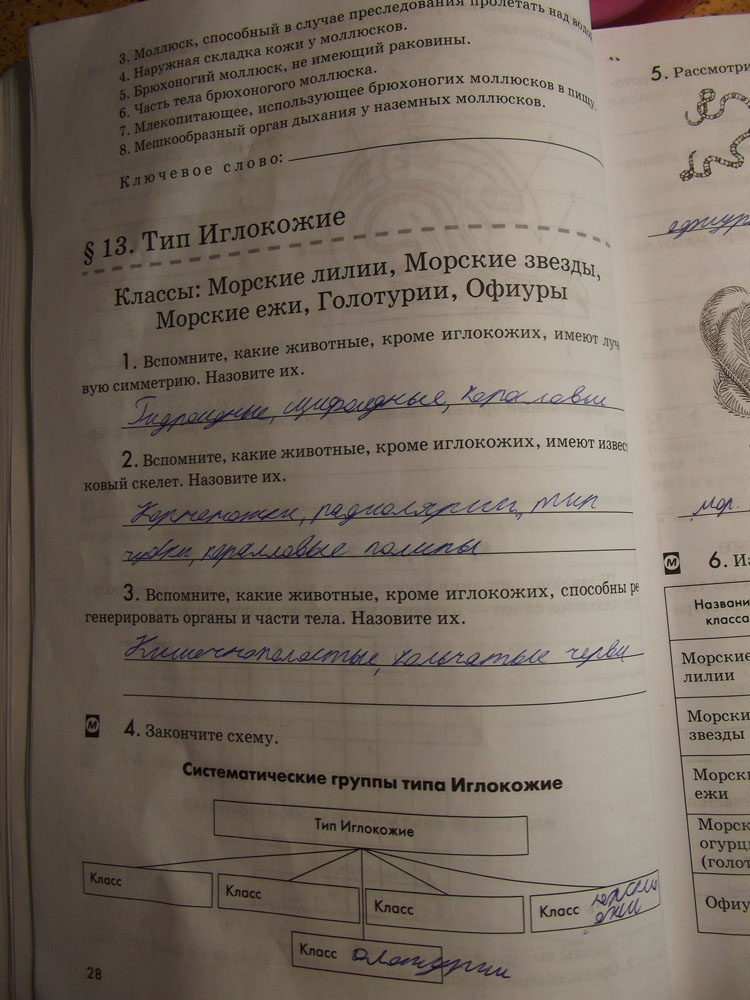 3. Моллюск, способный в случае преследования пролетать над водой
4. Наружная складка кожи у моллюсков.
5. Брюхоногий моллюск, не имеющий раковины.
6. Часть тела брюхоногого моллюска.
7. Млекопитающее, использующее брюхоногих моллюсков в пищу.
8. Мешкообразный орган дыхания у наземных моллюсков.
Ключевое слово:
§ 13. Тип Иглокожие
Классы: Морские лилии, Морские звезды,
Морские ежи, Голотурии, Офиуры
1. Вспомните, какие животные, кроме иглокожих, имеют луче
вую симметрию. Назовите их.
Гидроидные, сцифоидные, коралловые
2. Вспомните, какие животные, кроме иглокожих, имеют извест
ковый скелет. Назовите их.
Корненожки, радиолярии, тип
губки, коралловые полипы
3. Вспомните, какие животные, кроме иглокожих, способны ре
генерировать органы и части тела. Назовите их.
Кишечнополостные, кольчатые черви
М
4. Закончите схему.
Систематические группы типа Иглокожие
Тип Иглокожие
Класс
Класс
Класс
Класс морские
ежи
Класс олотурии
28
5. Рассмотри
офиур
мор.
М
6. Из
Названи
класса
Морские
лилии
Морски
звезды
Морск
ежи
Морск
огурц
(голот
Офиу